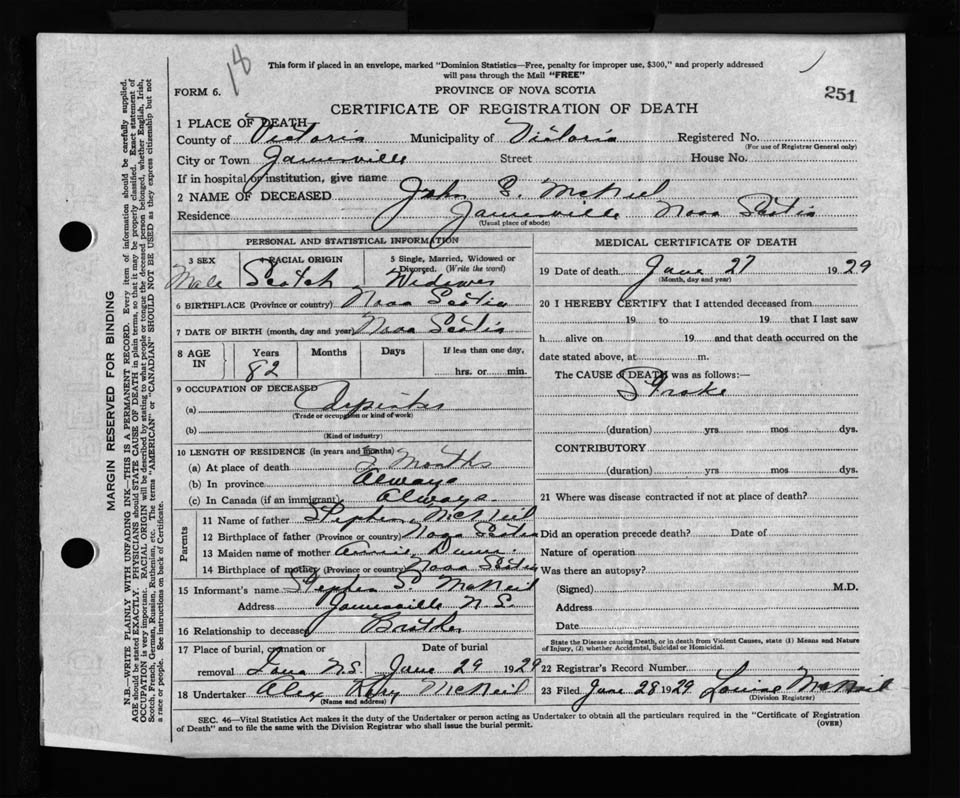 18
This form if placed in an envelope, marked "Dominion Statistics—Free, penalty for improper use, $300," and properly addressed
will pass through the Mail "FREE"
FORM 6.
PROVINCE OF NOVA SCOTIA
251
CERTIFICATE OF REGISTRATION OF DEATH
1 PLACE OF DEATH
County of Victoria Municipality of Victoria Registered No.
(For use of Registrar General only)
City or Town Jamesville Street House No.
If in hospital or institution, give name
2 NAME OF DECEASED John S. McNeil
Residence Jamesville Nova Scotia
(Usual place of abode)
PERSONAL AND STATISTICAL INFORMATION
3 SEX 4 RACIAL ORIGIN 5 Single, Married, Widowed or
Divorced. (Write the word)
Male Scotch Widower
6 BIRTHPLACE (Province or country) Nova Scotia
7 DATE OF BIRTH (month, day and year) Nova Scotia
8 AGE IN Years Months Days If less than one day,
82 hrs. or min.
9 OCCUPATION OF DECEASED
(a) Carpenter
(Trade or occupation or kind of work)
(b)
(Kind of industry)
10 LENGTH OF RESIDENCE (in years and months)
(a) At place of death Months
(b) In province Always
(c) In Canada (if an immigrant) Always.
Parents
11 Name of father Stephen McNeil
12 Birthplace of father (Province or country) Nova Scotia
13 Maiden name of mother Annie
14 Birthplace of mother (Province or country) Nova Scotia
15 Informant's name Stephen S. McNeil
Address Jamesville N.S.
16 Relationship to deceased Brother
17 Place of burial, cremation or Date of burial
removal Iona N.S. June 29 1929
18 Undertaker Alex McNeil
(Name and address)
MEDICAL CERTIFICATE OF DEATH
19 Date of death June 27 1929
(Month, day and year)
20 I HEREBY CERTIFY that I attended deceased from
19 to 19 that I last saw
h alive on 19 and that death occurred on the
date stated above, at m.
The CAUSE of DEATH was as follows:—
Stroke
(duration) yrs mos dys.
CONTRIBUTORY
(duration) yrs mos dys.
21 Where was disease contracted if not at place of death?
Did an operation precede death? Date of
Nature of operation
Was there an autopsy?
(Signed) M.D.
Address
Date
State the Disease causing Death, or in death from Violent Causes, state (1) Means and Nature
of Injury, (2) whether Accidental, Suicidal or Homicidal.
22 Registrar's Record Number
23 Filed June 28 1929 Louise McNeil
(Division Registrar)
SEC. 46—Vital Statistics Act makes it the duty of the Undertaker or person acting as Undertaker to obtain all the particulars required in the "Certificate of Registration
of Death" and to file the same with the Division Registrar who shall issue the burial permit.
(OVER)
MARGIN RESERVED FOR BINDING
N.B.—WRITE PLAINLY WITH UNFADING INK—THIS IS A PERMANENT RECORD. Every item of information should be carefully supplied.
AGE should be stated EXACTLY. PHYSICIANS should STATE CAUSE OF DEATH in plain terms, so that it may be properly classified. Exact statement of
OCCUPATION is very important. RACIAL ORIGIN will be described by stating to what people or tongue the deceased person belonged, whether English, Irish,
Scotch, French, German, Russian, Ruthenian, etc. The terms "AMERICAN" or "CANADIAN" SHOULD NOT BE USED as they express citizenship but not
a race or people. See instructions on back of Certificate.